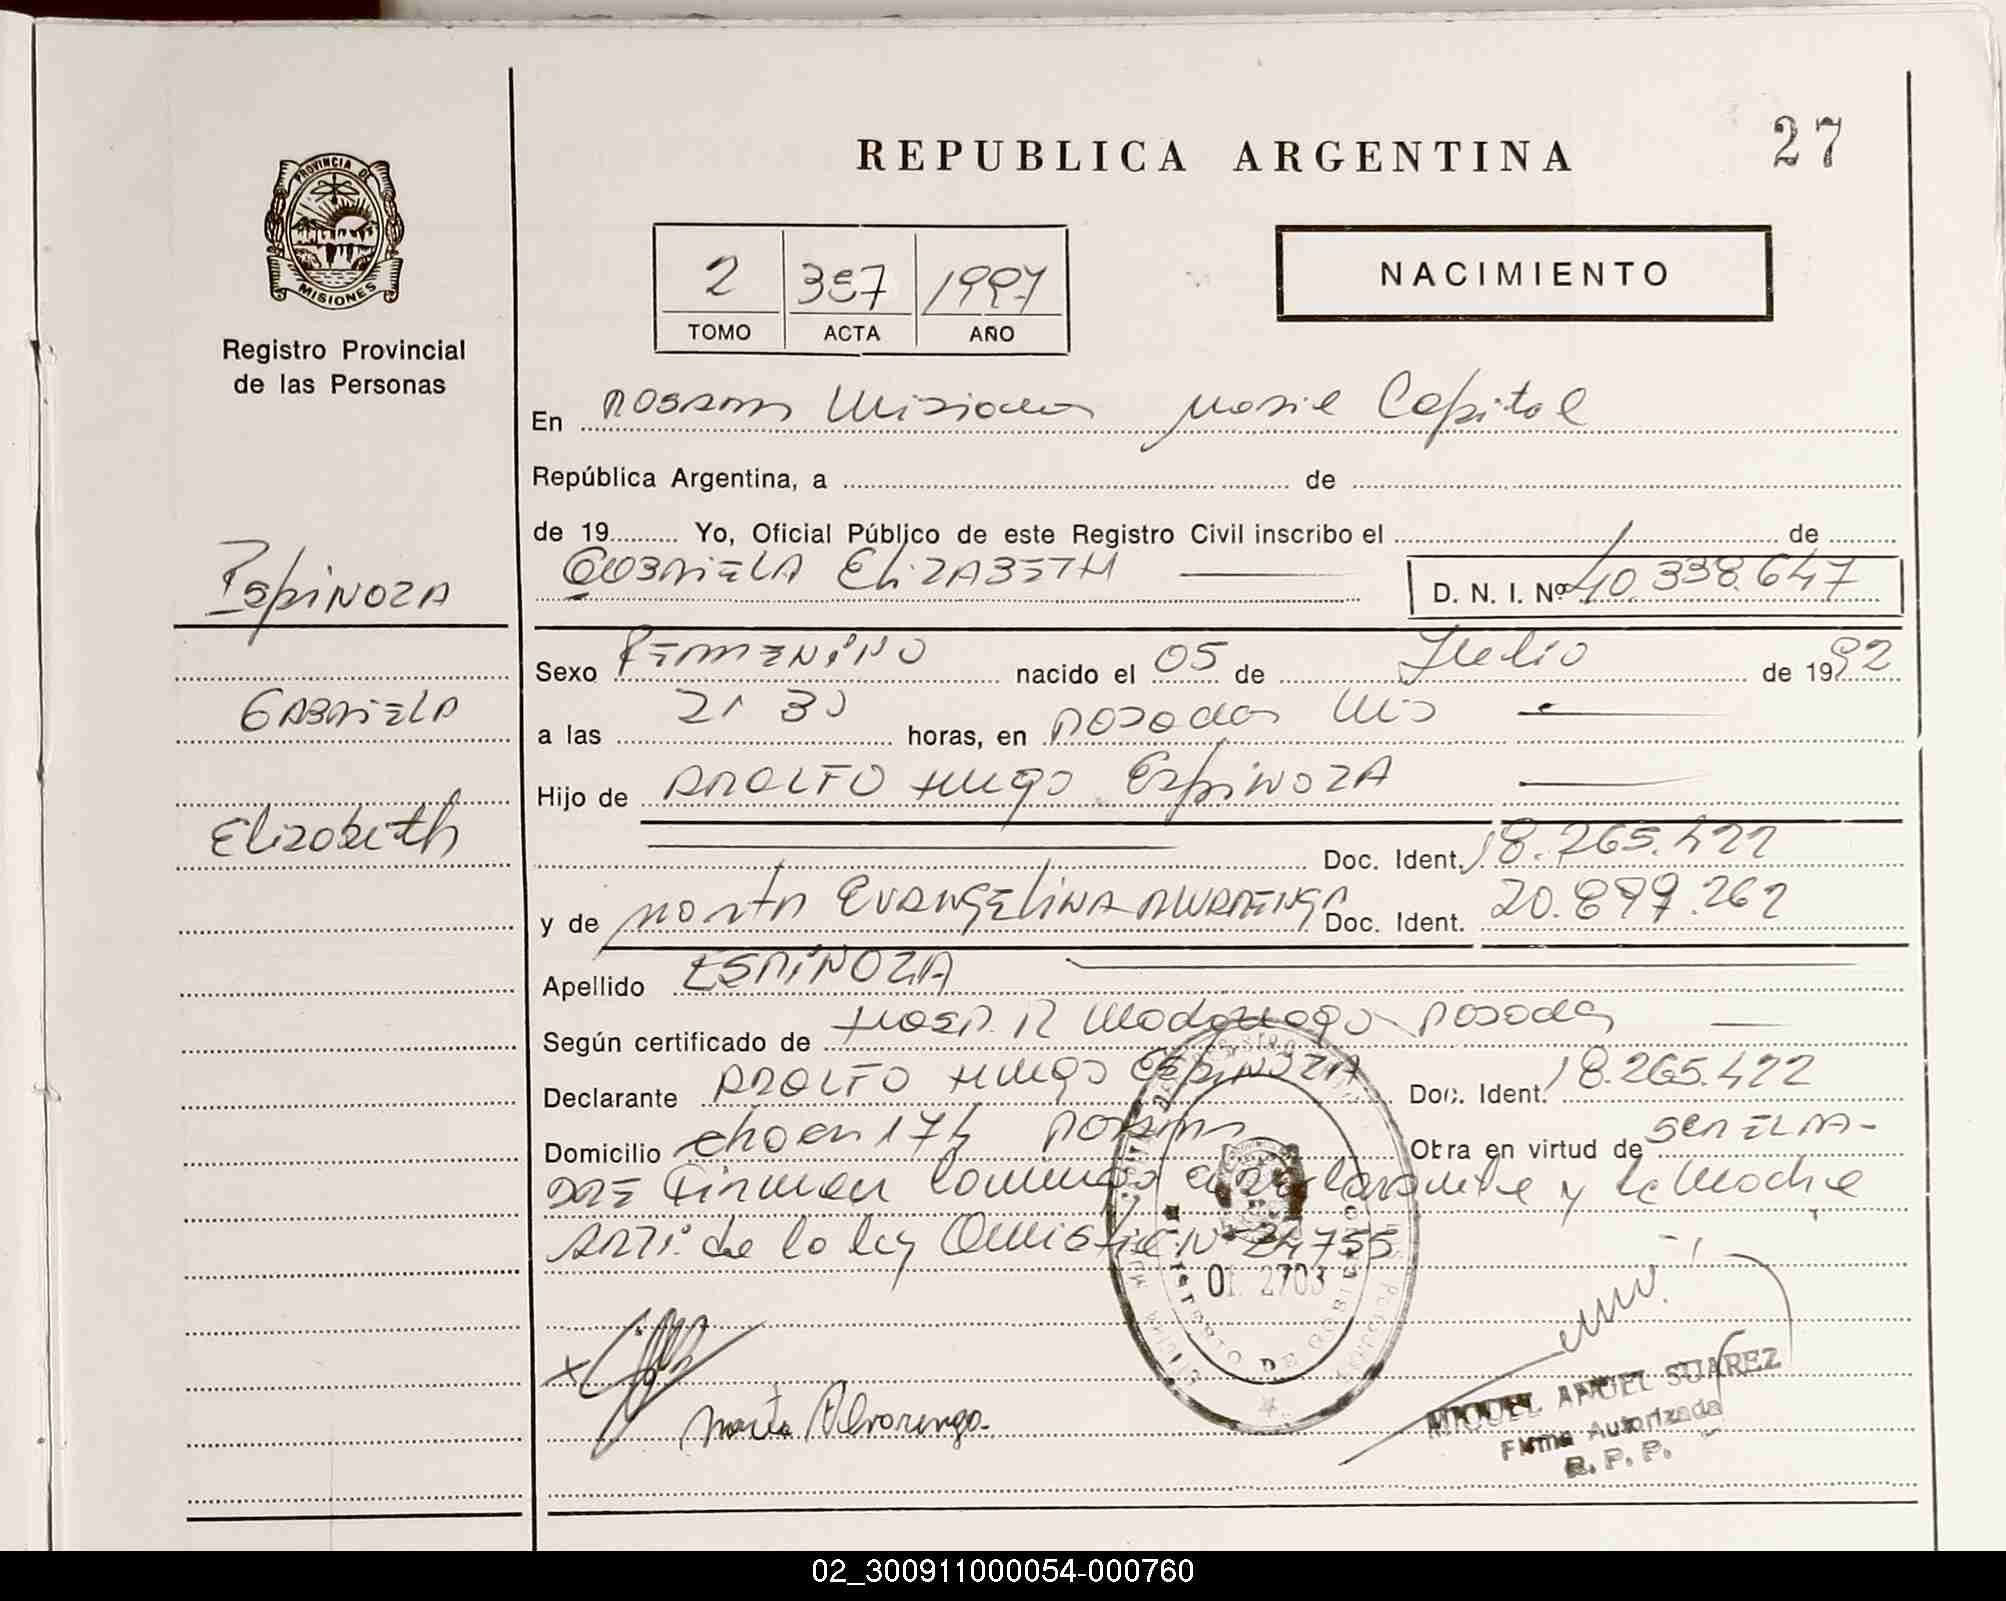 27
REPUBLICA ARGENTINA
PROVINCIA DE
MISIONES
Registro Provincial
de las Personas
2 387 1997
TOMO ACTA AÑO
NACIMIENTO
En Posadas Misiones Capital
República Argentina, a de
de 19 Yo, Oficial Público de este Registro Civil inscribo el de
GABRIELA ELIZABETH D. N. I. Nº 40.338.647
Espinoza
Gabriela
Elizabeth
Sexo Femenino nacido el 05 de Julio de 1992
a las 21 30 horas, en Posadas Mis
Hijo de Adolfo Hugo Espinoza
Doc. Ident. 18.265.422
y de Marta Evangelina Alvarenga Doc. Ident. 20.899.262
Apellido ESPINOZA
Según certificado de Hosp. R Madariaga Posadas
Declarante Adolfo Hugo Espinoza Doc. Ident. 18.265.422
Domicilio 174 Posadas Otra en virtud de ser el pa-
dre Firman conmigo el declarante y la Madre
de la ley Amnistia Nº 24755
OF. 2703
MINISTERIO DE GOBIERNO
Marta Alvarenga
MIGUEL ANGEL SUAREZ
Firma Autorizada
R. P. P.
02_300911000054-000760